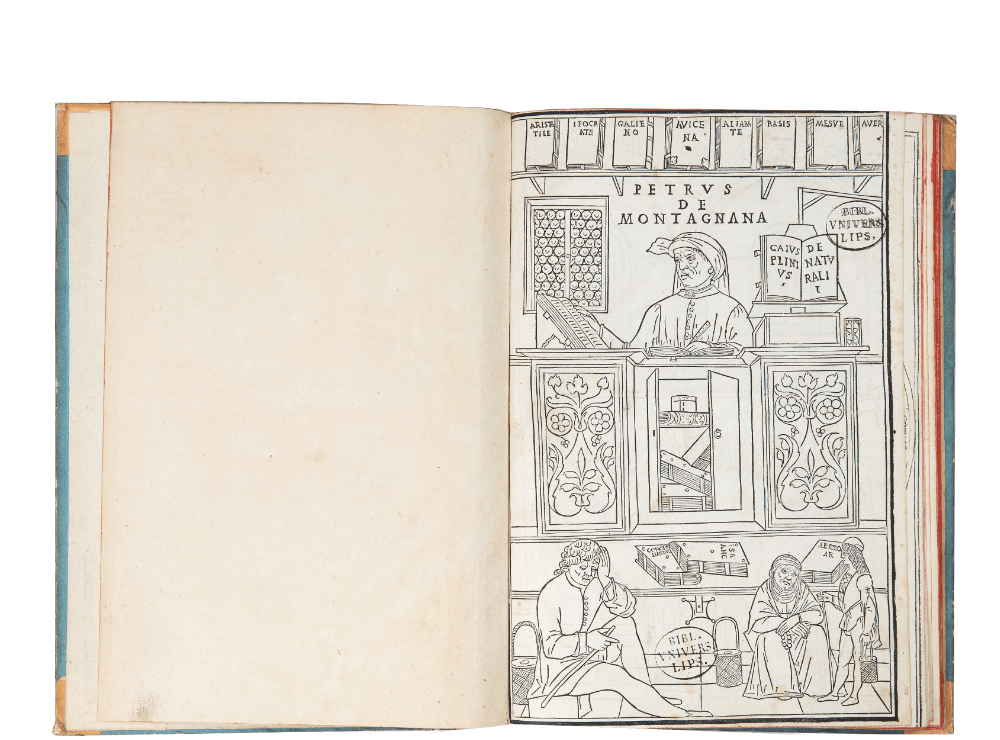 ARISTE
TILE
IPOCR
ATE
GALIE
NO
AVICE
NA
ALIAM
TE
RASIS
MESVE
AVER
PETRVS
DE
MONTAGNANA
BIBL.
VNIVERS
LIPS.
CAIVS
PLINI
VS
DE
NATV
RALI
ISA
AHC
BIBL.
VNIVERS
LIPS.